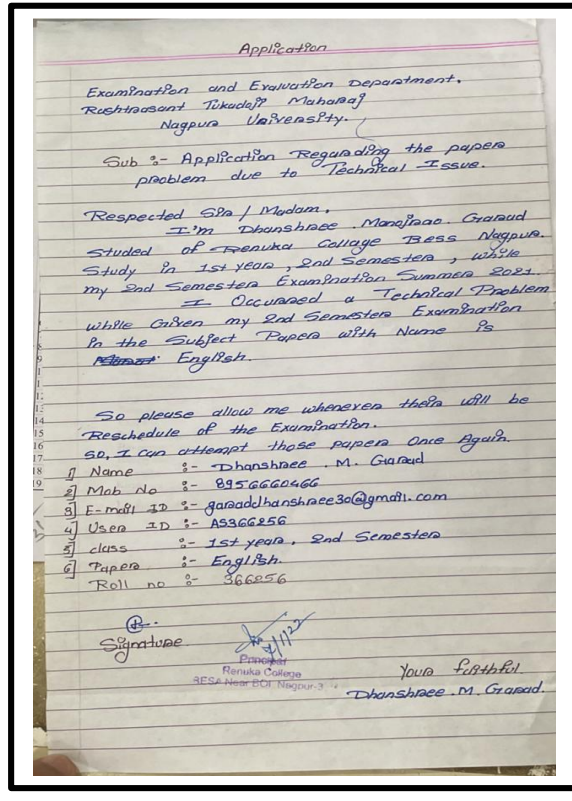 Application
Examination and Evaluation Department.
Rashtrasant Tukadoji Maharaj
Nagpur University.
Sub :- Application Regarding the paper
problem due to Technical Issue.
Respected Sir / Madam.
I'm Dhanshree . Manojrao . Garad
Studed of Renuka Collage Bess Nagpur.
Study in 1st year , 2nd Semester , while
my 2nd Semester Examination Summer 2021.
I Occurred a Technical Problem
while Given my 2nd Semester Examination
in the Subject Paper with Name is
English.
So please allow me whenever their will be
Reschedule of the Examination.
so, I can attempt those paper Once Again.
1] Name :- Dhanshree . M. Garad
2] Mob No :- 8956660466
3] E-mail ID :- garaddhanshree30@gmail.com
4] User ID :- AS366256
5] class :- 1st year , 2nd Semester
6] Paper :- English.
Roll no :- 366256
Signature
7/1/22
Principal
Renuka College
BESA Near BOI, Nagpur-3
Your faithful
Dhanshree . M. Garad.